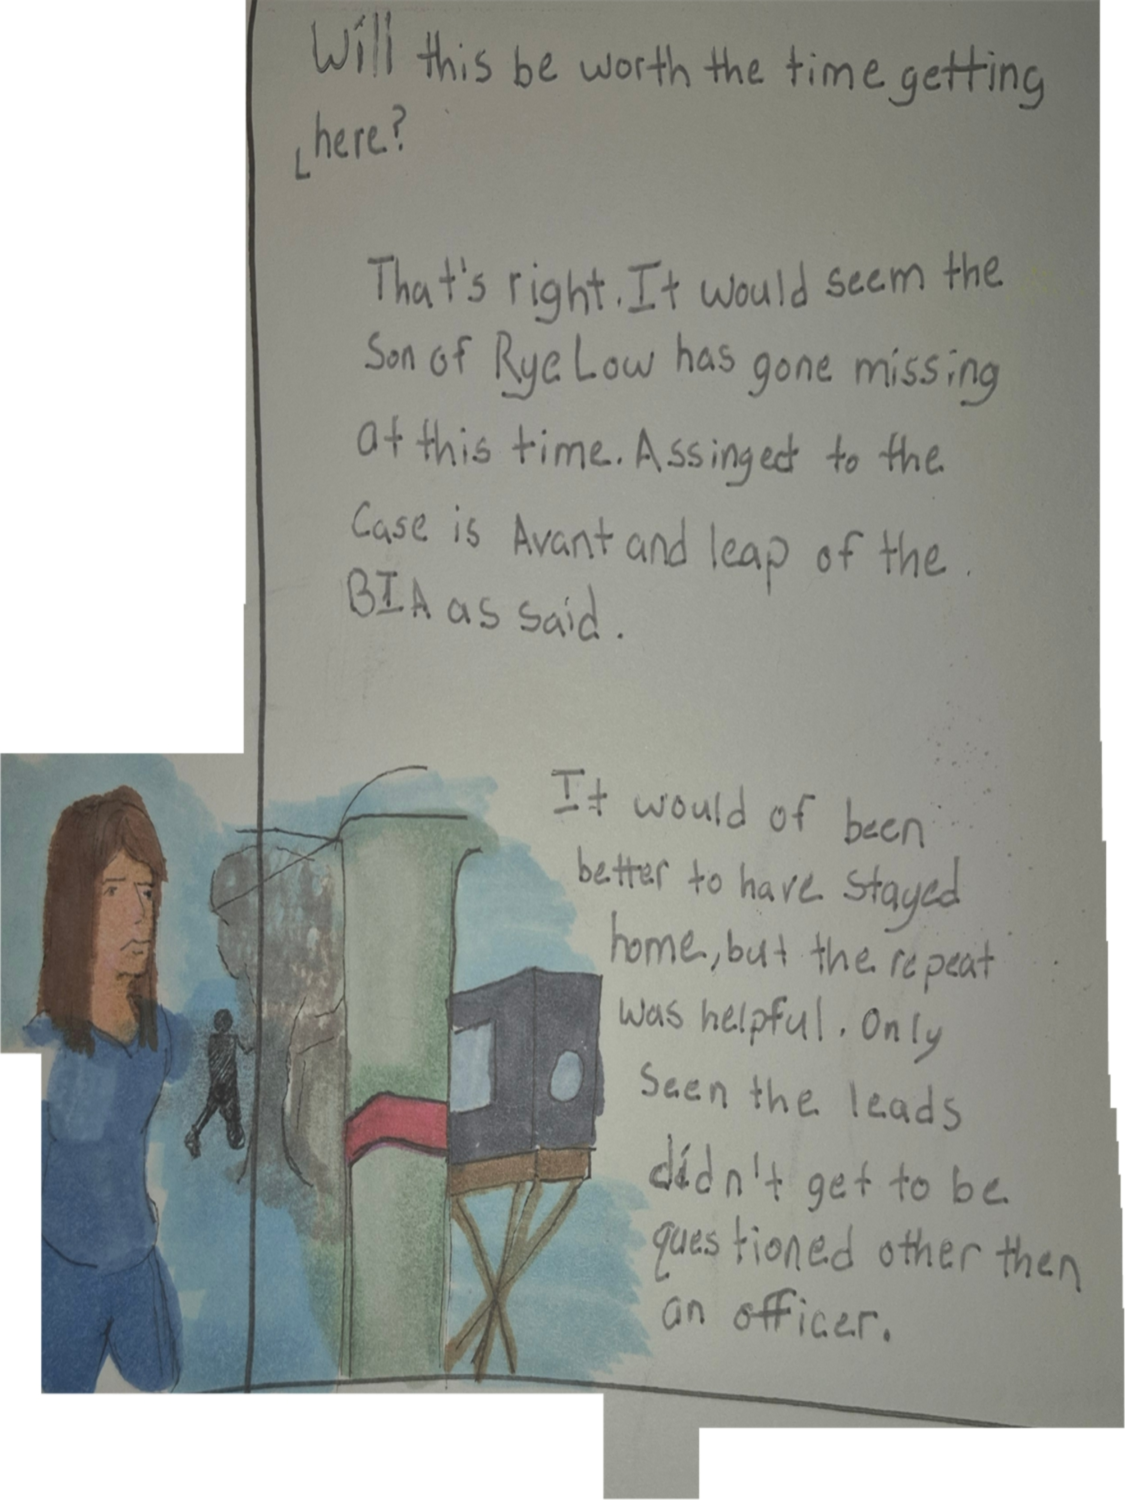 Will this be worth the time getting
here?
That's right. It would seem the
Son of Rye Low has gone missing
at this time. Assinged to the
Case is Avant and leap of the
BIA as said.
It would of been
better to have stayed
home, but the repeat
was helpful. Only
seen the leads
didn't get to be
questioned other then
an officer.